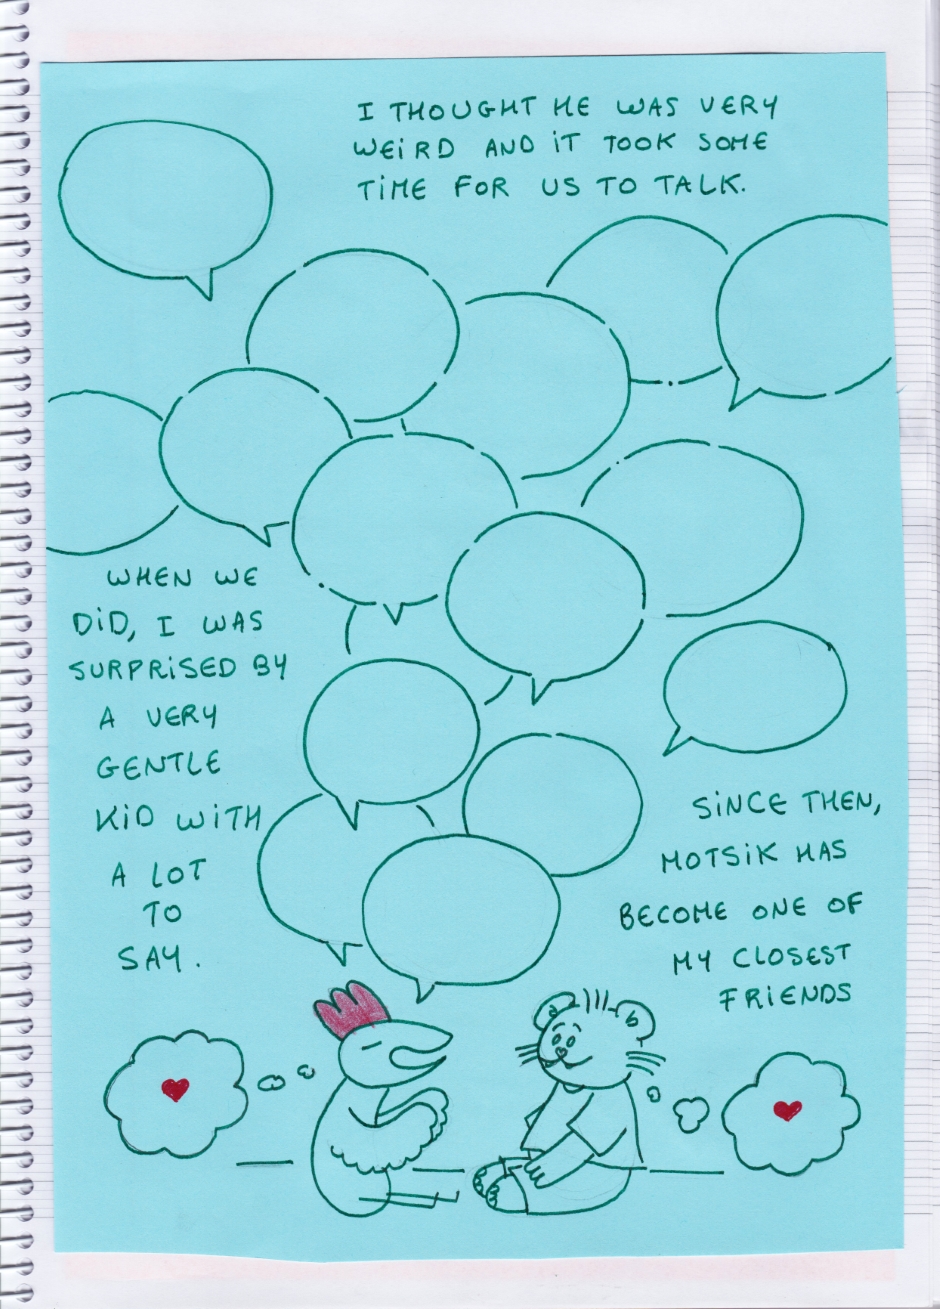 I THOUGHT HE WAS VERY
WEiRD AND iT TOOK SOME
TiME FOR US TO TALK.
WHEN WE
DiD, I WAS
SURPRiSED BY
A VERY
GENTLE
KiD WiTH
A LOT
TO
SAY.
SiNCE THEN,
MOTSiK HAS
BECOME ONE OF
MY CLOSEST
FRiENDS